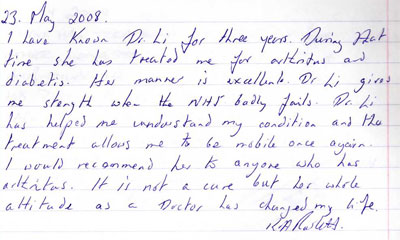 23. May 2008.
I have known Dr. Li for three years. During that
time she has treated me for arthritus and
diabetis. Her manner is excellent. Dr Li gives
me stength when the NHS badly fails. Dr. Li
has helped me understand my condition and the
treatment allows me to be mobile once again.
I would recommend her to anyone who has
arthritus. It is not a cure but her whole
attitude as a Doctor has changed my life.